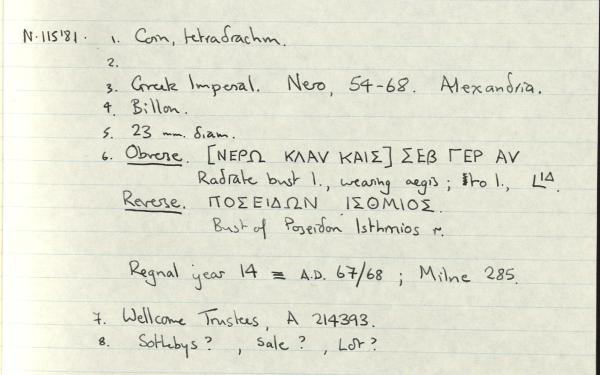 N.115'81. 1. Coin, tetradrachm.
2.
3. Greek Imperial. Nero, 54-68. Alexandria.
4. Billon.
5. 23 mm. diam.
6. Obverse. [ΝΕΡΩ ΚΛΑV ΚΑΙΣ] ΣΕΒ ΓΕΡ ΑV
Radiate bust l., wearing aegis; to l., L ΙΔ.
Reverse. ΠΟΣΕΙΔΩΝ ΙΣΘΜΙΟΣ.
Bust of Poseidon Isthmios r.
Regnal year 14 ≡ A.D. 67/68; Milne 285.
7. Wellcome Trustees, A 214393.
8. Sothebys? , Sale? , Lot?